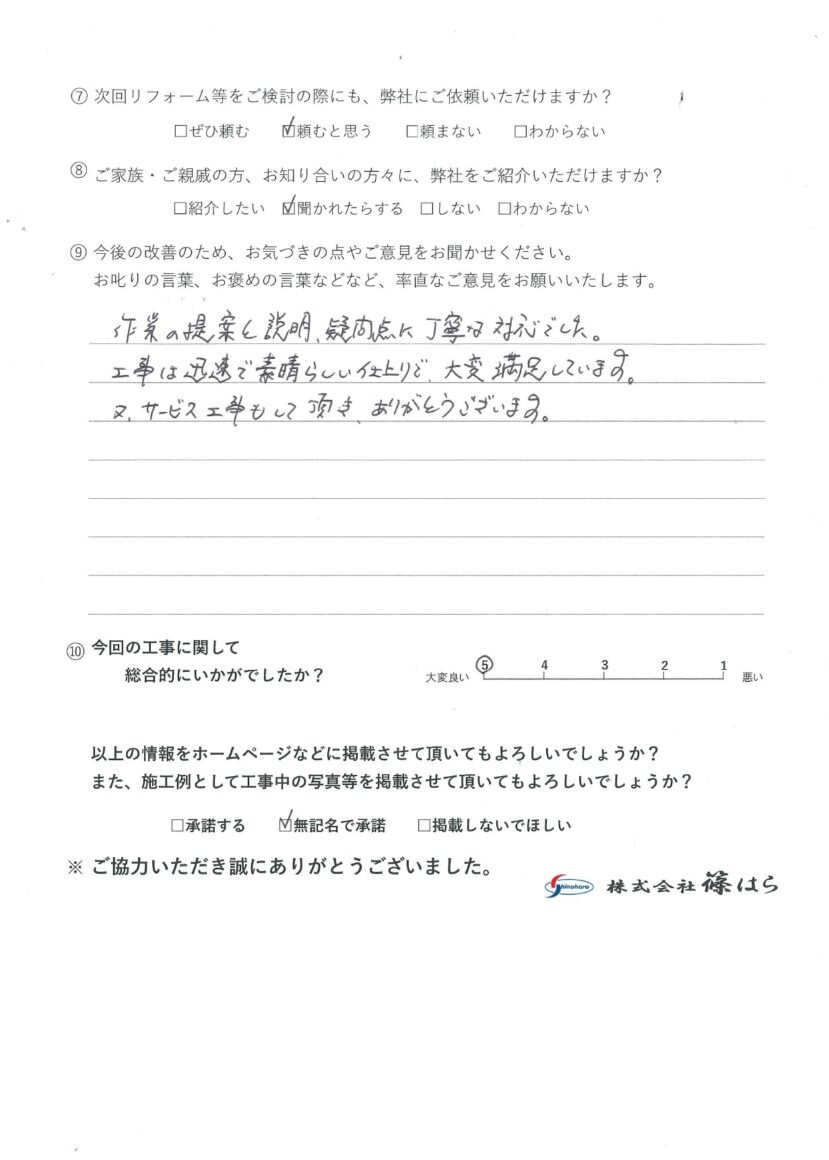 ⑦ 次回リフォーム等をご検討の際にも、弊社にご依頼いただけますか？
□ぜひ頼む ☑頼むと思う □頼まない □わからない
⑧ ご家族・ご親戚の方、お知り合いの方々に、弊社をご紹介いただけますか？
□紹介したい ☑聞かれたらする □しない □わからない
⑨ 今後の改善のため、お気づきの点やご意見をお聞かせください。
お叱りの言葉、お褒めの言葉などなど、率直なご意見をお願いいたします。
作業の提案と説明、疑問点に丁寧な対応でした。
工事は迅速で素晴らしい仕上りで、大変満足しています。
又、サービス工事もして頂き、ありがとうございます。
⑩ 今回の工事に関して
総合的にいかがでしたか？
大変良い 5 4 3 2 1 悪い
以上の情報をホームページなどに掲載させて頂いてもよろしいでしょうか？
また、施工例として工事中の写真等を掲載させて頂いてもよろしいでしょうか？
□承諾する ☑無記名で承諾 □掲載しないでほしい
※ ご協力いただき誠にありがとうございました。
Shinohara 株式会社 篠はら